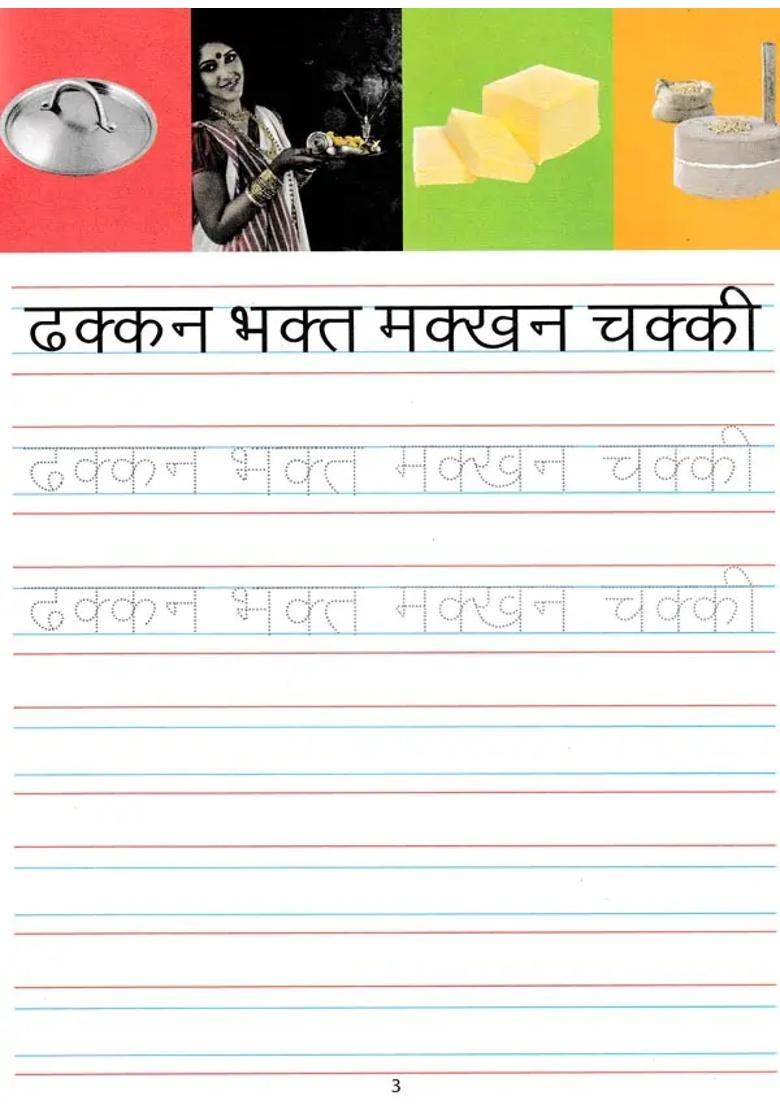 ढक्कन भक्त मक्खन चक्की
ढक्कन भक्त मक्खन चक्की
ढक्कन भक्त मक्खन चक्की
3